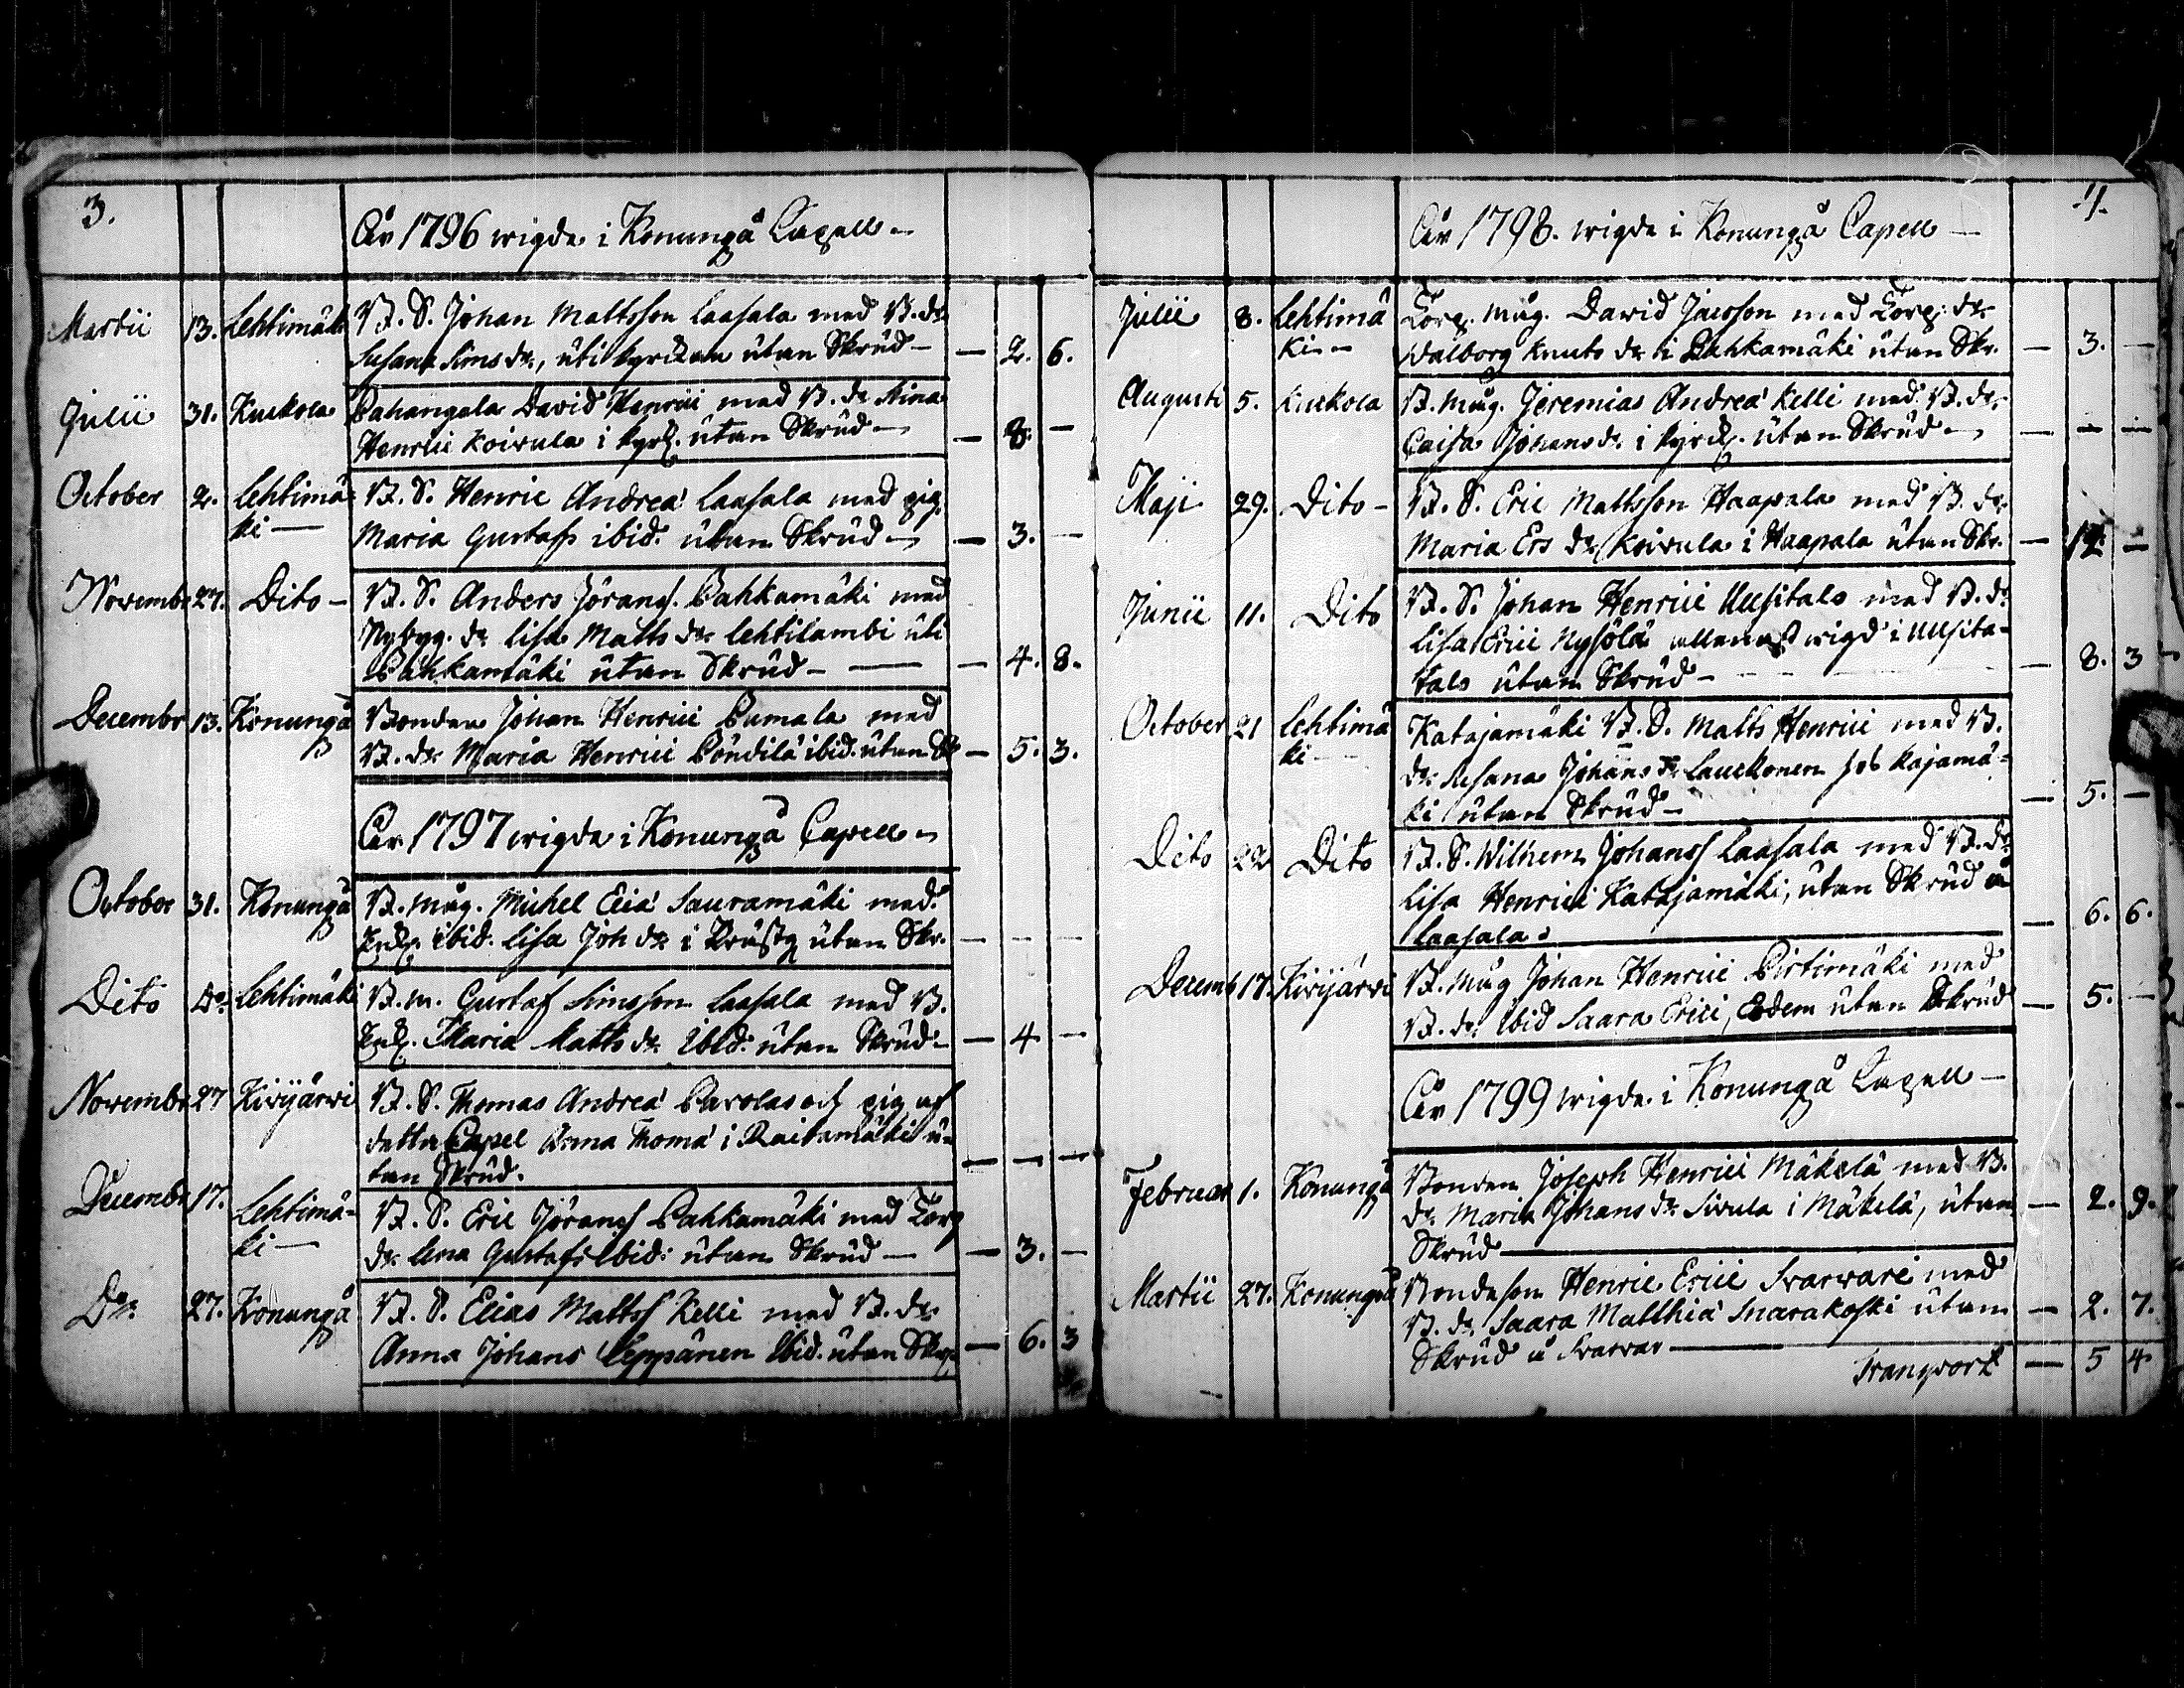 3.
År 1796 wigde i Konungå Capell
Martii 13. Lehtimäki B. S. Johan Mattsson Laasala med B. dr
Susana Sims dr, uti kyrckan utan Skrud — — 2. 6.
Julii 31. Kuckola Pahangala David Henrici med B. dr Stina
Henrici Koivula i kyrk. utan Skrud — — 8. —
October 2. Lehtimä- B. S. Henric Andreæ Laasala med pig.
ki — Maria Gustafs ibid. utan Skrud — — 3. —
Novembr 27. Dito — B. S. Anders Jörans. Pahkamäki med
Nybyg. dr Lisa Matts dr Lehtilambi uti
Pahkamäki utan Skrud — — — 4. 8.
Decembr 13. Konungå Bonden Johan Henrici Pumala med
B. dr Maria Henrici Pöndilä ibid. utan Sk — 5. 3.
År 1797 wigde i Konungå Capell
October 31. Konungå B. måg. Michel Sauramäki med
Enk. ibid. Lisa Joh dr i utan Skr. — — —
Dito Do Lehtimäki B. m. Gustaf Simsson Laasala med B.
Enk. Maria Matts dr Ibid. utan Skrud — — 4 —
Novembr 27 Kivijärvi B. S. Thomas Andreæ Pavolas och pig af
detta Capel Anna Thomæ i Raitamäki u-
tan Skrud. — — —
Decembr 17. Lehtimä- B. S. Eric Jörans Pahkamäki med Torp
ki — dr Lena Gustafs Ibid: utan Skrud — — 3. —
Dr 27. Konungå B. S. Elias Mattss Kelli med B. dr
Anna Johans Leppänen Ibid. utan Skr. — 6. 3
4.
År 1798. wigde i Konungå Capell —
Julii 8. Lehtimä Torp. måg. David Jacsson med Torp: dr
ki — Walborg Knuts dr i Pahkamäki utan Skr. — 3. —
Augusti 5. Kuckola B. måg. Jeremias Andreæ Kelli med B. dr
Caisa Johans dr i kyrck. utan Skrud — — — —
Maji 29. Dito — B. S. Eric Mattsson Haapala med B. dr
Maria Ers dr Koivula i Haapala utan Skr. — 12 —
Junii 11. Dito B. S. Johan Henrici Uusitalo med B. dr
Lisa Erici Nysölä allenast wigd i Uusita-
talo utan Skrud — — 8. 3
October 21 Lehtimä Katajamäki B. S. Matts Henrici med B.
ki — dr Susana Johans dr Lauckonen hos Kajamä-
ki utan Skrud — — 5. —
Dito 22 Dito B. S. Wilhem Johanss Laasala med B. dr
Lisa Henrici Katajamäki, utan Skrud å
Laasala. — 6. 6.
Decemb 17. Kivijärvi B. måg Johan Henrici Pirtimäki med
B. dr Ibid Saara Erici, Ibdem utan Skrud — 5. —
År 1799 wigde i Konungå Capell —
Februar 1. Konungå Bonden Joseph Henrici Mäkelä med B.
dr Maria Johans dr Sivula i Mäkelä, utan — 2. 9.
Skrud —
Martii 27. Konungå Bondeson Henric Erici Svarvare med
B. dr Saara Matthiæ Snarakoski utan — 2. 7.
Skrud å Svarvar —
Transport — 5 4